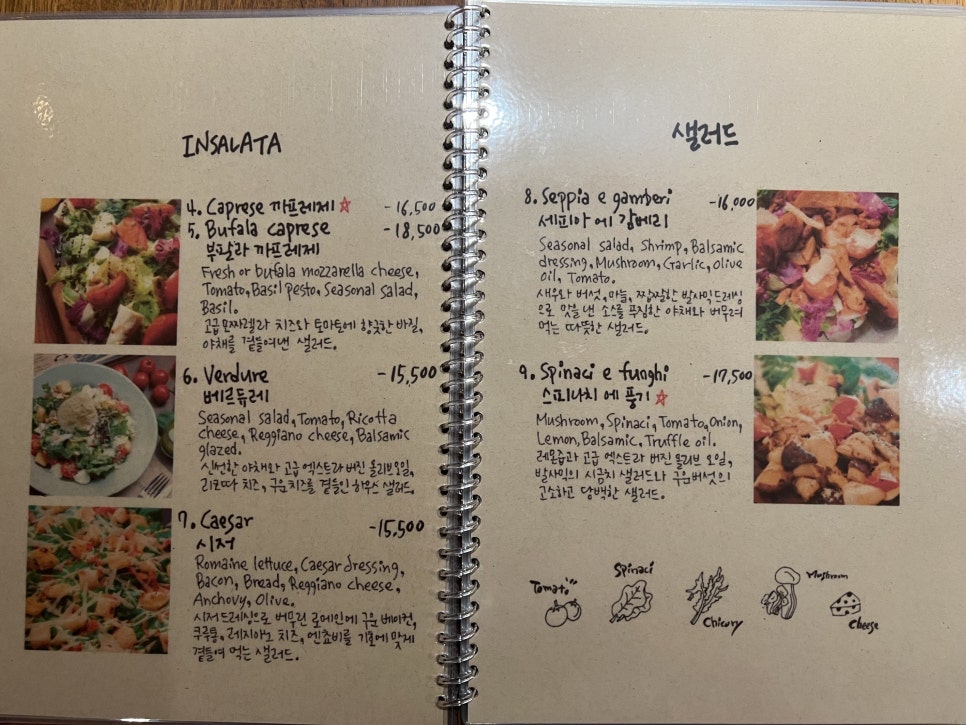 INSALATA
4. Caprese 까프레제 ☆ -16,500
5. Bufala caprese -18,500
부팔라 까프레제
Fresh or bufala mozzarella cheese,
Tomato, Basil pesto, Seasonal salad,
Basil.
고급 모짜렐라 치즈와 토마토에 향긋한 바질,
야채를 곁들여낸 샐러드.
6. Verdure -15,500
베르듀레
Seasonal salad, Tomato, Ricotta
cheese, Reggiano cheese, Balsamic
glazed.
신선한 야채와 고급 엑스트라 버진 올리브오일,
리코따 치즈, 구운치즈를 곁들인 하우스 샐러드.
7. Caesar -15,500
시저
Romaine lettuce, Caesar dressing,
Bacon, Bread, Reggiano cheese,
Anchovy, Olive.
시저드레싱으로 버무린 로메인에 구운 베이컨,
쿠루통, 레지아노 치즈, 엔쵸비를 기호에 맞게
곁들여 먹는 샐러드.
샐러드
8. Seppia e gamberi -16,000
세피아 에 감베리
Seasonal salad, Shrimp, Balsamic
dressing, Mushroom, Garlic, Olive
oil, Tomato.
새우와 버섯, 마늘, 짭짤한 발사믹드레싱
으로 맛을 낸 소스를 푸짐한 야채와 버무려
먹는 따뜻한 샐러드.
9. Spinaci e funghi -17,500
스피나치 에 풍기 ☆
Mushroom, Spinaci, Tomato, Onion,
Lemon, Balsamic, Truffle oil.
레몬즙과 고급 엑스트라 버진 올리브 오일,
발사믹의 시금치 샐러드나 구운버섯의
고소하고 담백한 샐러드.
Tomato
Spinaci
Chicory
Mushroom
Cheese